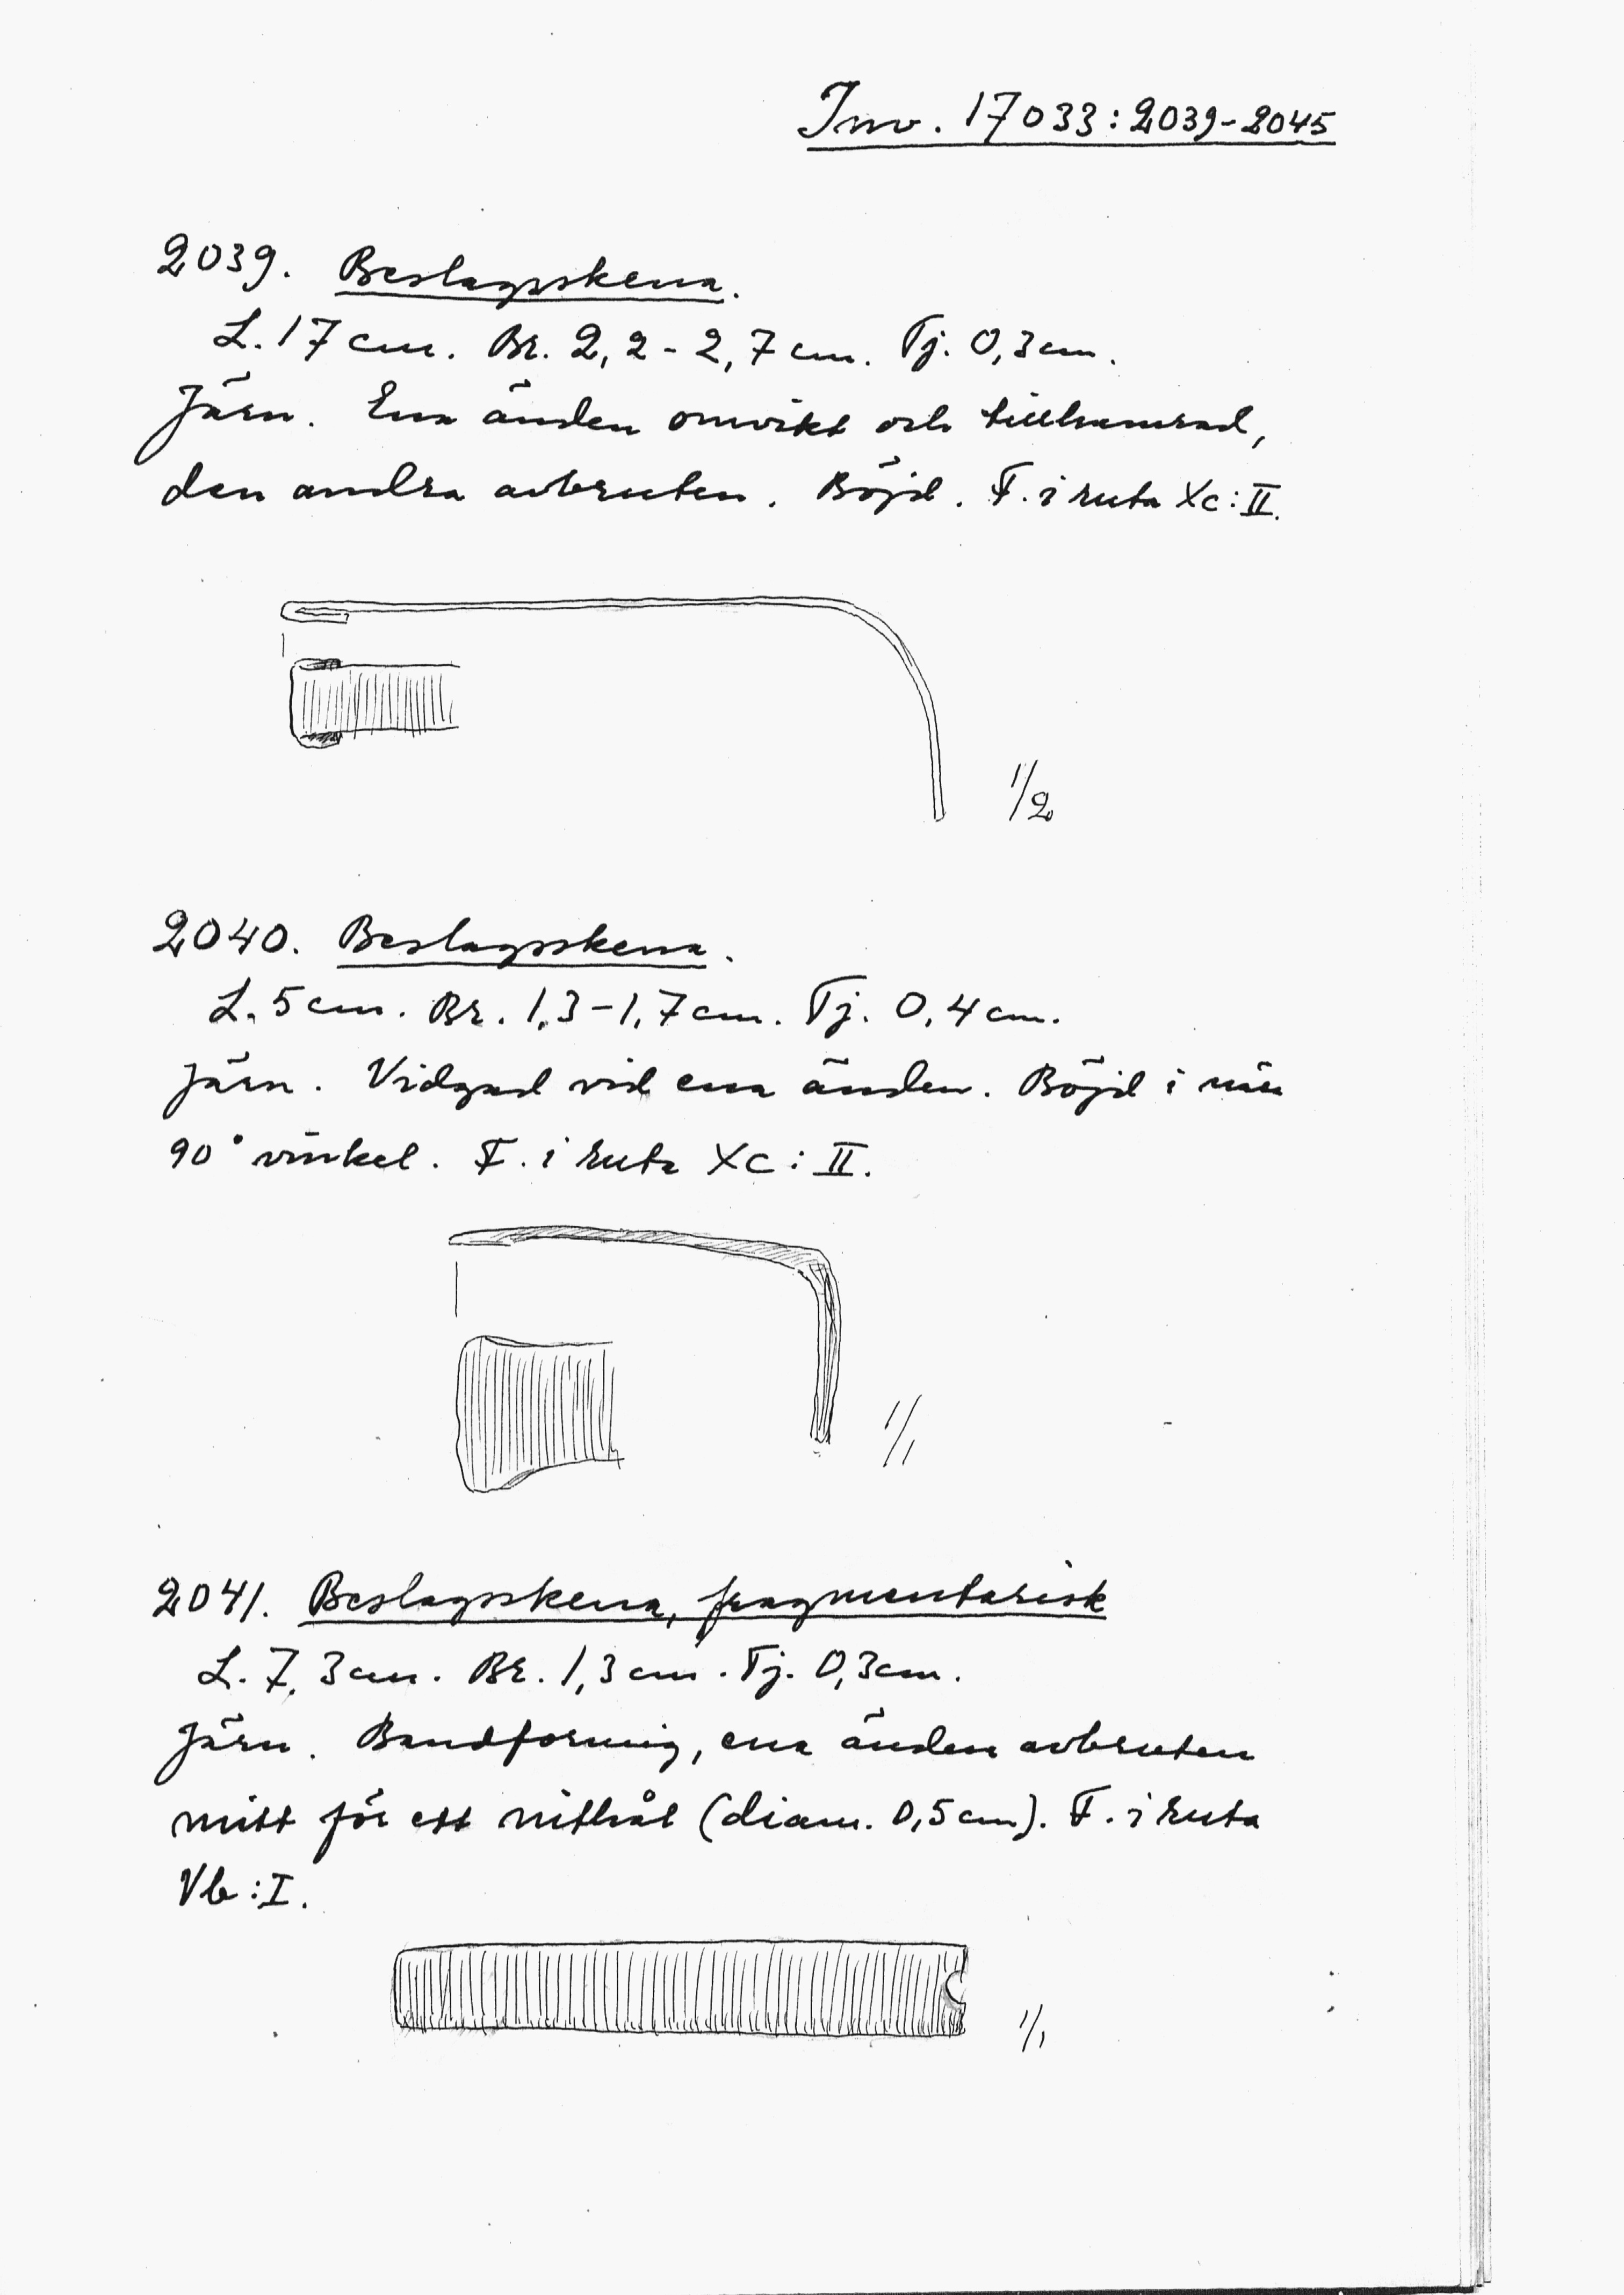 Inv. 17033:2039-2045
2039. Beslagsskena.
L. 17 cm. Br. 2,2-2,7 cm. Tj. 0,3 cm.
Järn. Ena änden omvikt och tillhamrad,
den andra avbruten. Böjd. F. i ruta Xc:II.
1/2
2040. Beslagsskena.
L. 5 cm. Br. 1,3-1,7 cm. Tj. 0,4 cm.
Järn. Vidgad vid ena änden. Böjd i när
90° vinkel. F. i ruta Xc:II.
1/1
2041. Beslagsskena, fragmentarisk
L. 7,3 cm. Br. 1,3 cm. Tj. 0,3 cm.
Järn. Bandformig, ena änden avbruten
mitt för ett nithål (diam. 0,5 cm). F. i ruta
Vb:I.
1/1